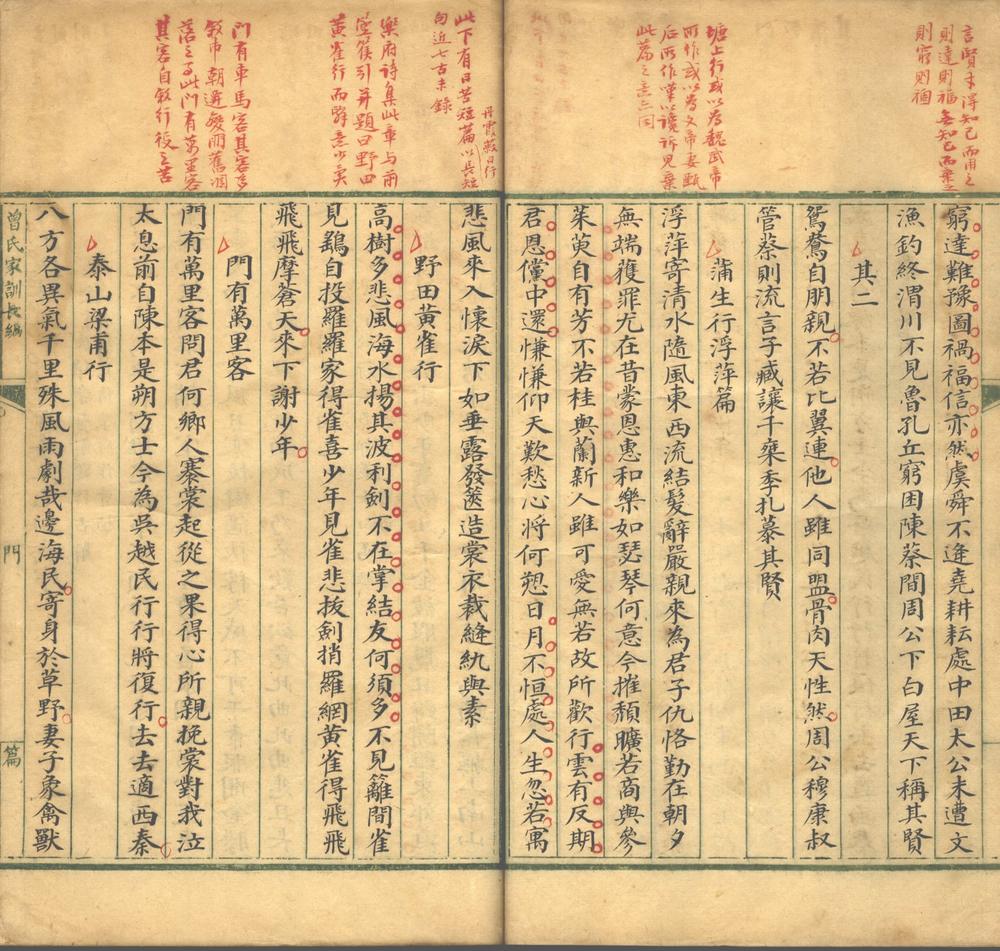 言賢才得知己而用之
則達則福無知己而棄之
則窮則禍
窮達難豫圖禍福信亦然虞舜不逢堯耕耘處中田太公未遭文
漁釣終渭川不見魯孔丘窮困陳蔡間周公下白屋天下稱其賢
其二
鴛鴦自朋親不若比翼連他人雖同盟骨肉天性然周公穆康叔
管蔡則流言子臧讓千乘季札慕其賢
塘上行或以為魏武帝
所作或以為文帝妻甄
后所作嘆以讒訴見棄
此篇之意亦同
蒲生行浮萍篇
浮萍寄清水隨風東西流結髮辭嚴親來為君子仇恪勤在朝夕
無端獲罪尤在昔蒙恩惠和樂如瑟琴何意今摧頹曠若商與參
茱萸自有芳不若桂與蘭新人雖可愛無若故所歡行雲有反期
君恩儻中還慊慊仰天歎愁心將何愬日月不恒處人生忽若寓
丹霞蔽日行
此下有日苦短篇以長短
句近七古未錄
悲風來入懷淚下如垂露發篋造裳衣裁縫紈與素
樂府詩集此章與前
箜篌引并題曰野田
黃雀行而辭意少異
野田黃雀行
高樹多悲風海水揚其波利劍不在掌結友何須多不見籬間雀
見鷂自投羅羅家得雀喜少年見雀悲拔劍捎羅網黃雀得飛飛
飛飛摩蒼天來下謝少年
門有車馬客其客多
敘市朝遷變朋舊凋
落之事此門有萬里客
其客自敘行役之苦
門有萬里客
門有萬里客問君何鄉人褰裳起從之果得心所親挽裳對我泣
太息前自陳本是朔方士今為吳越民行行將復行去去適西秦
泰山梁甫行
八方各異氣千里殊風雨劇哉邊海民寄身於草野妻子象禽獸
曾氏家訓長編
門
篇